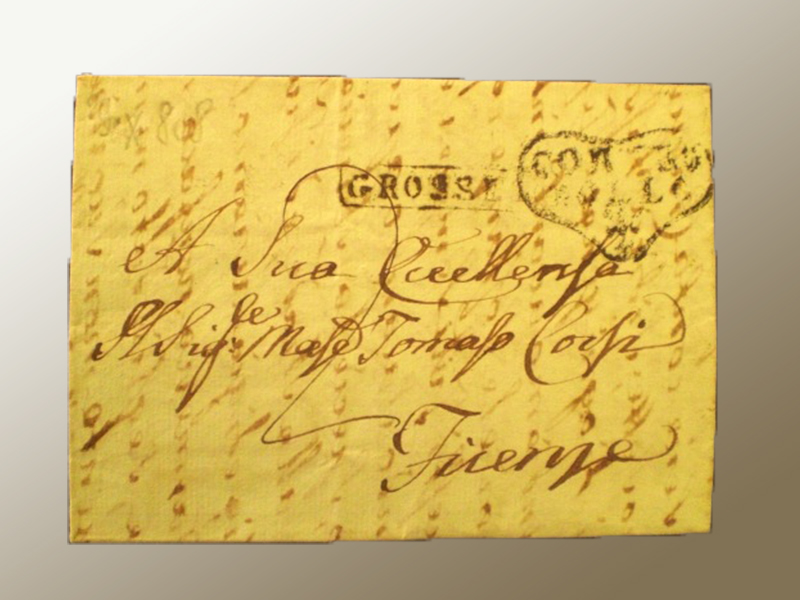 GROSSE
A Sua Eccellenza
Il Sigr Marse Tomaso Corsi
Firenze